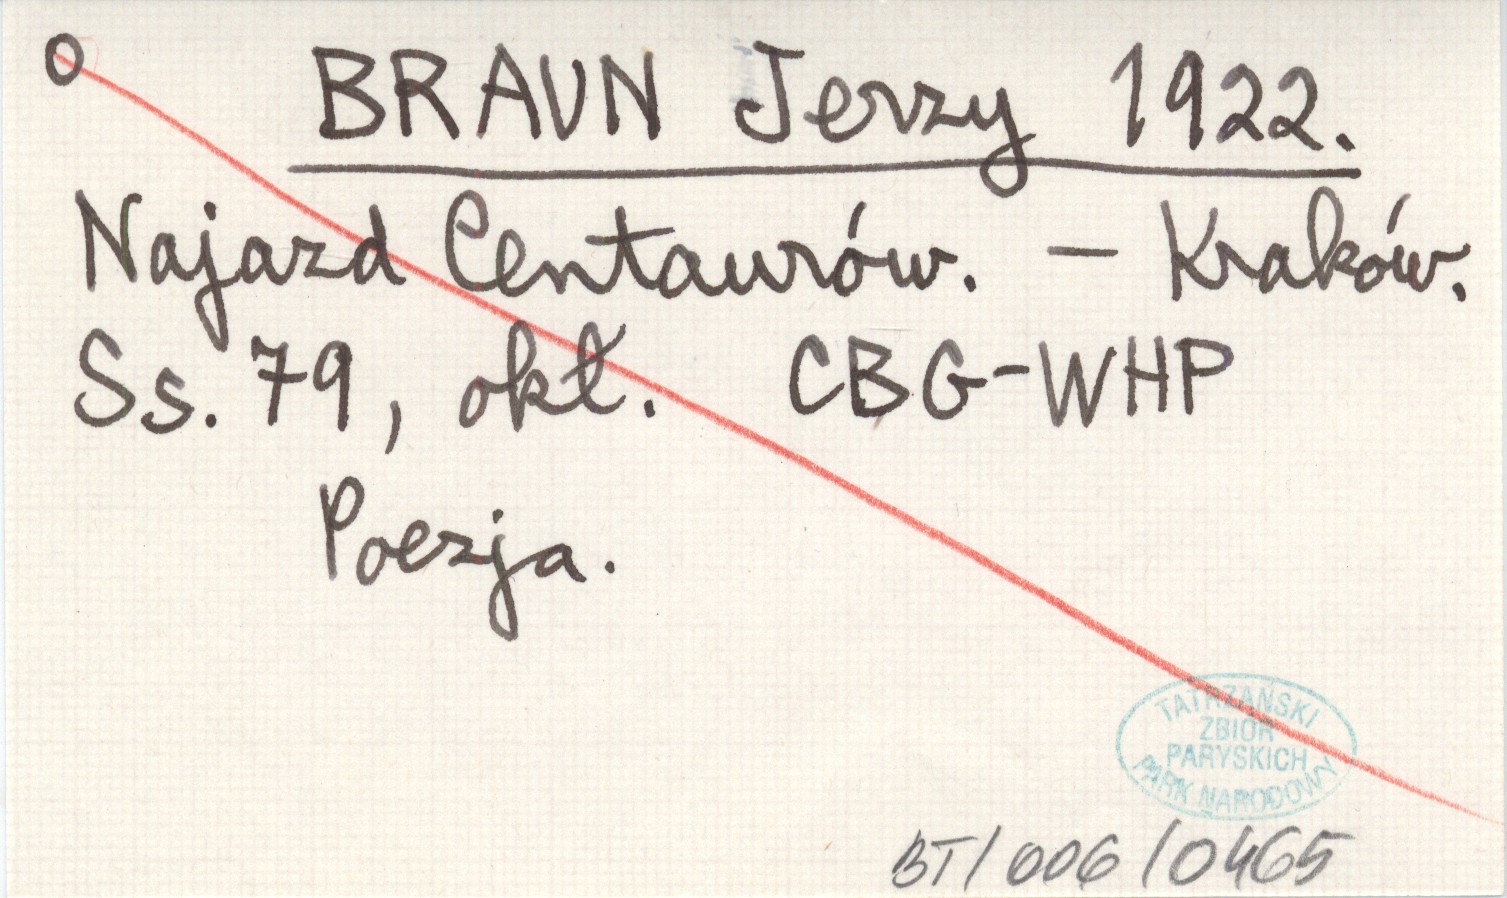 O BRAUN Jerzy 1922.
Najazd Centaurów. – Kraków.
Ss. 79, okł. CBG-WHP
Poezja.
TATRZAŃSKI
ZBIÓR
PARYSKICH
PARK NARODOWY
BT/006/0465